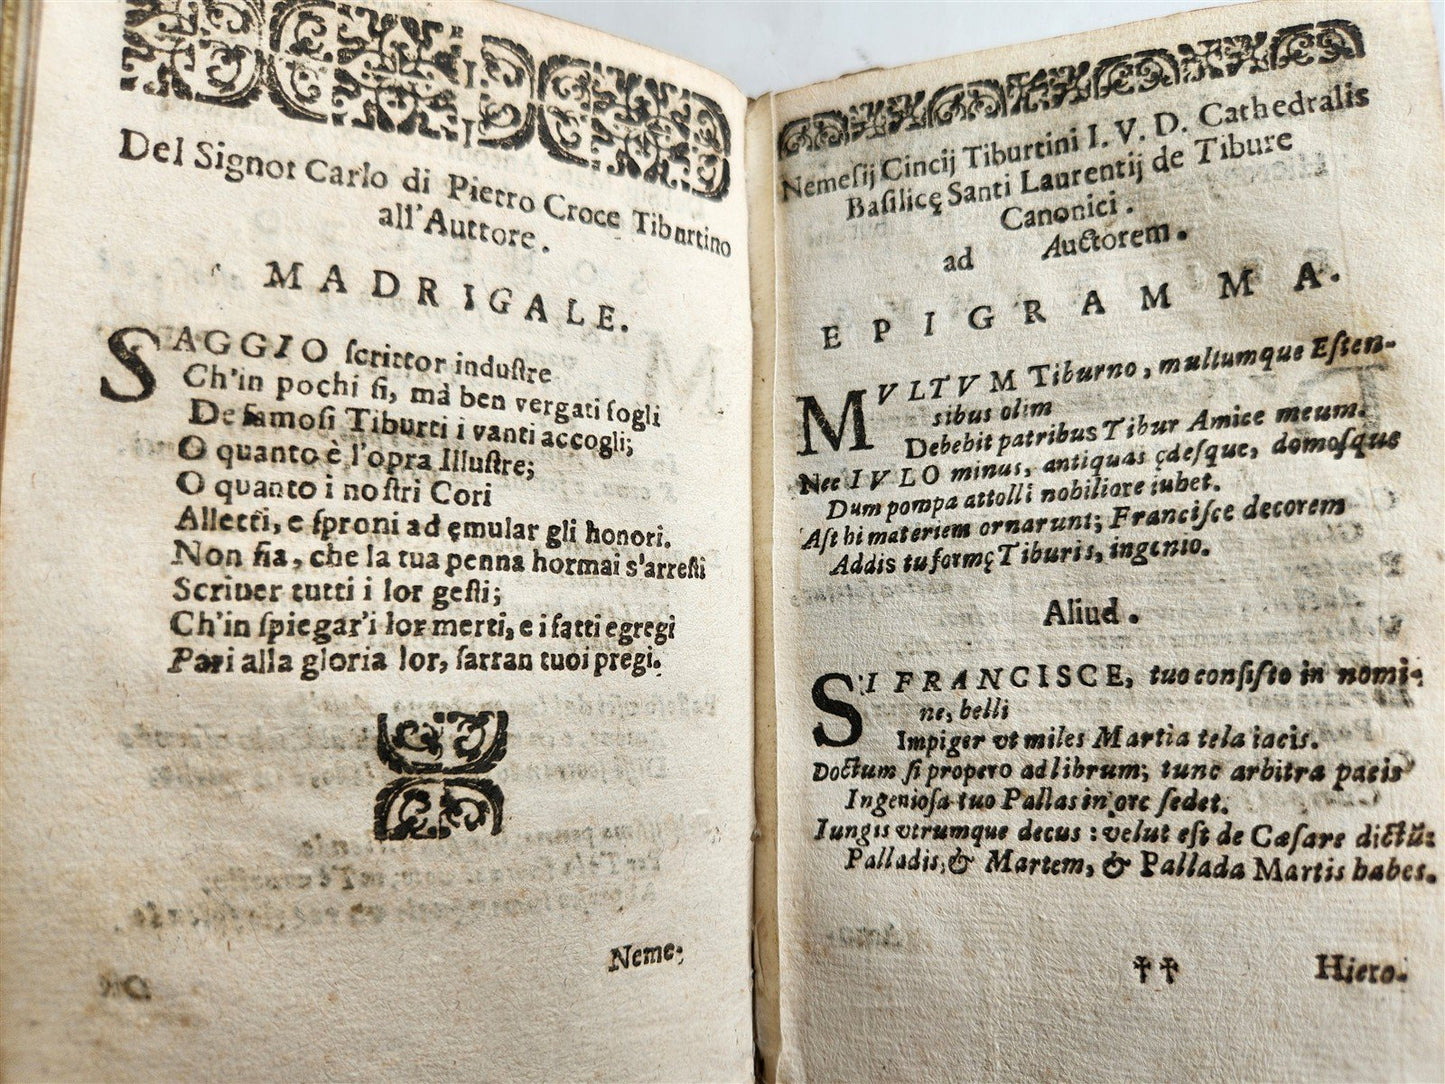 Del Signor Carlo di Pietro Croce Tiburtino
all'Auttore.
MADRIGALE.
SAGGIO ſcrittor induſtre
Ch'in pochi ſi, mà ben vergati fogli
De famoſi Tiburti i vanti accogli;
O quanto è l'opra Illuſtre;
O quanto i noſtri Cori
Alletti, e ſproni ad ęmular gli honori.
Non fia, che la tua penna hormai s'arreſti
Scriuer tutti i lor geſti;
Ch'in ſpiegar'i lor merti, e i fatti egregi
Pari alla gloria lor, ſarran tuoi pregi.
Neme-
Nemeſij Cincij Tiburtini I. V. D. Cathedralis
Baſilicę Santi Laurentij de Tibure
Canonici.
ad Auctorem.
EPIGRAMMA.
MVLTVM Tiburno, multumque Eſten-
sibus olim
Debebit patribus Tibur Amice meum.
Nec IVLO minus, antiquas ędeſque, domoſque
Dum pompa attolli nobiliore iubet.
Aſt hi materiem ornarunt; Franciſce decorem
Addis tu formę Tiburis, ingenio.
Aliud.
SI FRANCISCE, tuo conſiſto in nomi-
ne, belli
Impiger vt miles Martia tela iacis.
Doctum ſi propero ad librum; tunc arbitra pacis
Ingenioſa tuo Pallas in ore ſedet.
Iungis vtrumque decus: velut eſt de Cæſare dictũ:
Palladis, & Martem, & Pallada Martis habes.
†† Hiero-